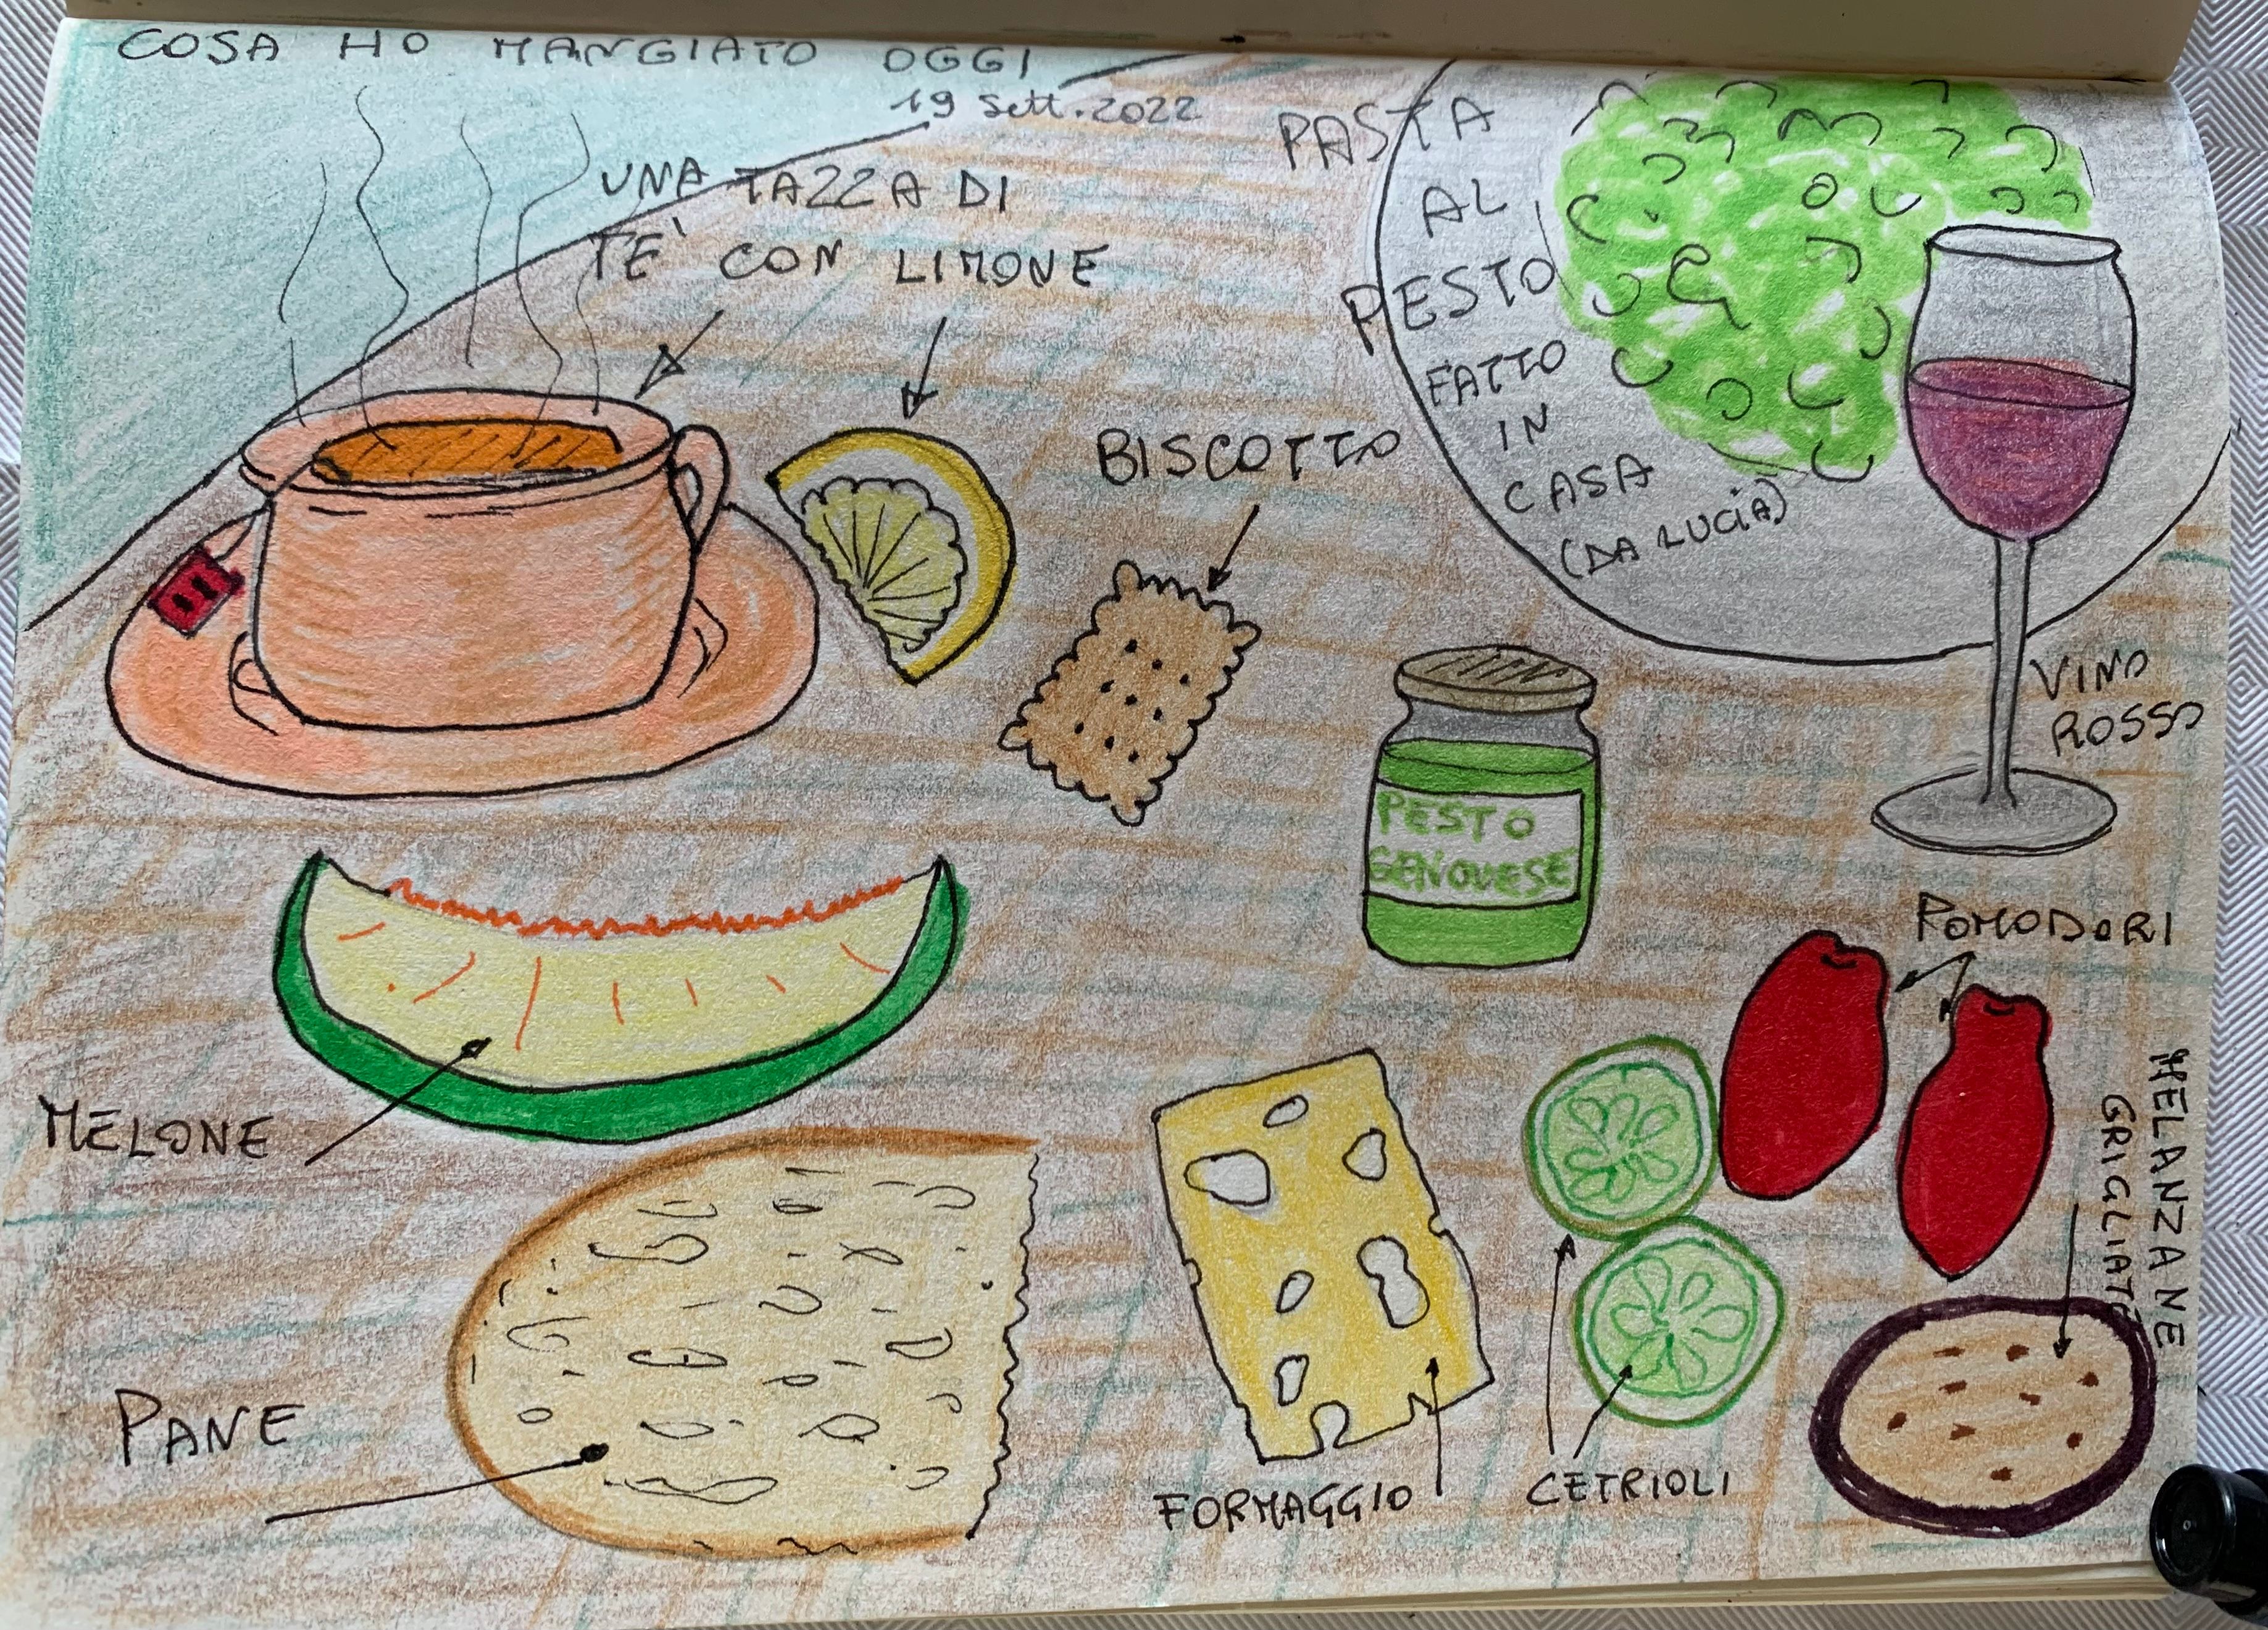 COSA HO MANGIATO OGGI
19 Sett. 2022
UNA TAZZA DI
TE' CON LIMONE
BISCOTTO
PASTA
AL
PESTO
FATTO
IN
CASA
(DA LUCIA)
VINO
ROSSO
PESTO
GENOVESE
POMODORI
MELANZANE
GRIGLIATE
MELONE
PANE
FORMAGGIO
CETRIOLI